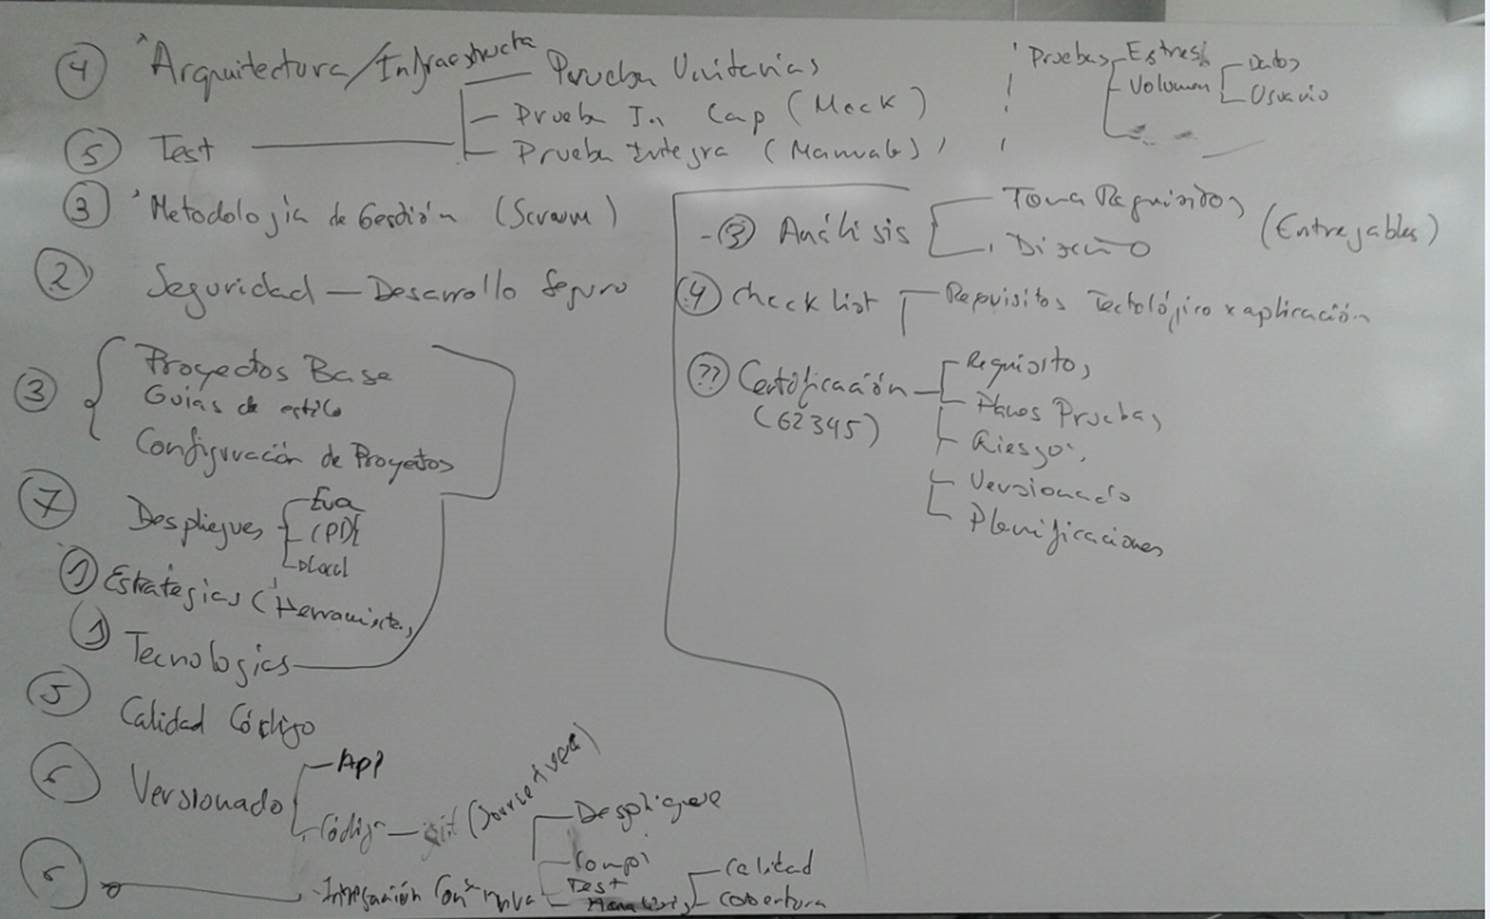 4 Arquitectura/Infraestructa
Prueba Unitarias
Prueba In Cap (Mock)
5 Test
Prueba Integra (Manuals)
Pruebas Estres
Volumen Datos
Usuario
3 Metodología de Gestión (Scrum)
2 Seguridad — Desarrollo Seguro
3 Proyectos Base
Guias de estilo
Configuración de Proyectos
7 Despliegues Eva
CPD
Local
1 Estrategias (Herramientas
1 Tecnologias
5 Calidad Código
6 Versionado App
Código — git (Sourcetree)
6 Integración Continua
Despliguese
Compi
Test
Calidad
Cobertura
- 3 Análisis Toma Requisitos
Diseño
(Entregables)
4 check list Requisitos Tectológico x aplicación
?? Certificación Requisitos
(62345) Planes Pruebas
Riesgos
Versionado
Planificaciones